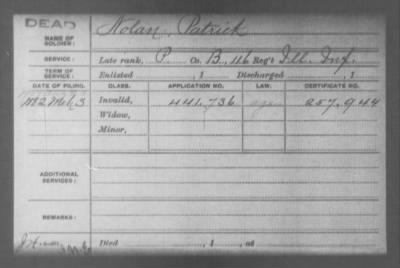 DEAD
NAME OF SOLDIER: Nolan, Patrick
SERVICE: Late rank, P. Co. B, 116 Reg't Ill. Inf.
TERM OF SERVICE: Enlisted , 1 Discharged , 1
DATE OF FILING. CLASS. APPLICATION NO. LAW. CERTIFICATE NO.
1882 Mch 3 Invalid, 441.736 257.944
Widow,
Minor,
ADDITIONAL SERVICES:
REMARKS:
Died , 1 , at